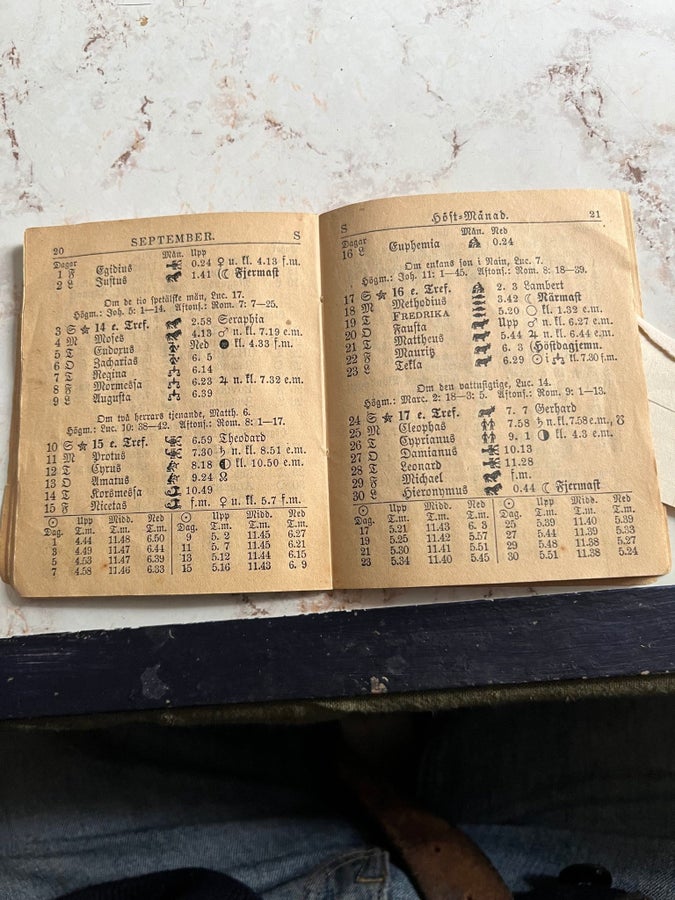 20 SEPTEMBER. S
Dagar Mån. Upp
1 F Egidius 0.24 ♀ n. kl. 4.13 f.m.
2 L Justus 1.41 ☾ Fjermast
Om de tio spetälske män, Luc. 17.
Högm.: Joh. 5: 1—14. Aftons.: Rom. 7: 7—25.
3 S ★ 14 e. Tref. 2.58 Seraphia
4 M Moses 4.13 ♂ n. kl. 7.19 e.m.
5 T Eudoxus Ned ● kl. 4.33 f.m.
6 O Zacharias 6. 5
7 T Regina 6.14
8 F Mormessa 6.23 ♃ n. kl. 7.32 e.m.
9 L Augusta 6.39
Om två herrars tjenande, Matth. 6.
Högm.: Luc. 10: 38—42. Aftons.: Rom. 8: 1—17.
10 S ★ 15 e. Tref. 6.59 Theodard
11 M Protus 7.30 ♄ n. kl. 8.51 e.m.
12 T Cyrus 8.18 ◐ kl. 10.50 e.m.
13 O Amatus 9.24 ☊
14 T Korsmessa 10.49
15 F Nicetas f.m. ♀ n. kl. 5.7 f.m.
☉ Upp Midd. Ned ☉ Upp Midd. Ned
Dag. T.m. T.m. T.m. Dag. T.m. T.m. T.m.
1 4.44 11.48 6.50 9 5. 2 11.45 6.27
3 4.49 11.47 6.44 11 5. 7 11.45 6.21
5 4.53 11.47 6.39 13 5.12 11.44 6.15
7 4.58 11.46 6.33 15 5.16 11.43 6. 9
S Höst-Månad. 21
Dagar Mån. Ned
16 L Euphemia 0.24
Om enkans son i Nain, Luc. 7.
Högm.: Joh. 11: 1—45. Aftons.: Rom. 8: 18—39.
17 S ★ 16 e. Tref. 2. 3 Lambert
18 M Methodius 3.42 ☾ Närmast
19 T FREDRIKA 5.20 ○ kl. 1.32 e.m.
20 O Fausta Upp ♂ n. kl. 6.27 e.m.
21 T Mattheus 5.44 ♃ n. kl. 6.44 e.m.
22 F Mauritz 6. 3 Höstdagjemn.
23 L Tekla 6.29 ☉ i ♎ kl. 7.30 f.m.
Om den vattusigtige, Luc. 14.
Högm.: Marc. 2: 18—3: 5. Aftons.: Rom. 9: 1—13.
24 S ★ 17 e. Tref. 7. 7 Gerhard
25 M Cleophas 7.58 ♄ n. kl. 7.58 e.m., ☋
26 T Cyprianus 9. 1 ◑ kl. 4.3 e.m.
27 O Damianus 10.13
28 T Leonard 11.28
29 F Michael f.m.
30 L Hieronymus 0.44 ☾ Fjermast
☉ Upp Midd. Ned ☉ Upp Midd. Ned
Dag. T.m. T.m. T.m. Dag. T.m. T.m. T.m.
17 5.21 11.43 6. 3 25 5.39 11.40 5.39
19 5.25 11.42 5.57 27 5.44 11.39 5.33
21 5.30 11.41 5.51 29 5.48 11.38 5.27
23 5.34 11.40 5.45 30 5.51 11.38 5.24